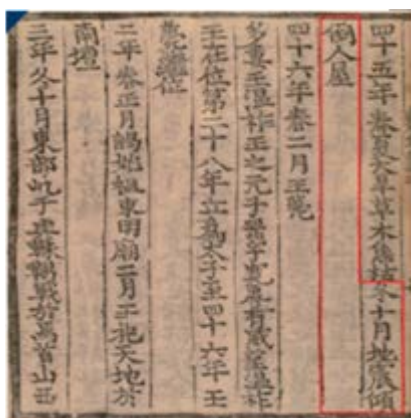 四十五年春夏大旱草木焦枯冬十月地震傾
倒人屋
四十六年春二月王薨
多婁王溫祚王之元子器宇寬厚有威望溫祚
王在位第二十八年立爲太子至四十六年王
薨繼位
二年春正月謁始祖東明廟二月王祀天地於
南壇
三年冬十月東部屹于與靺鞨戰於馬首山西